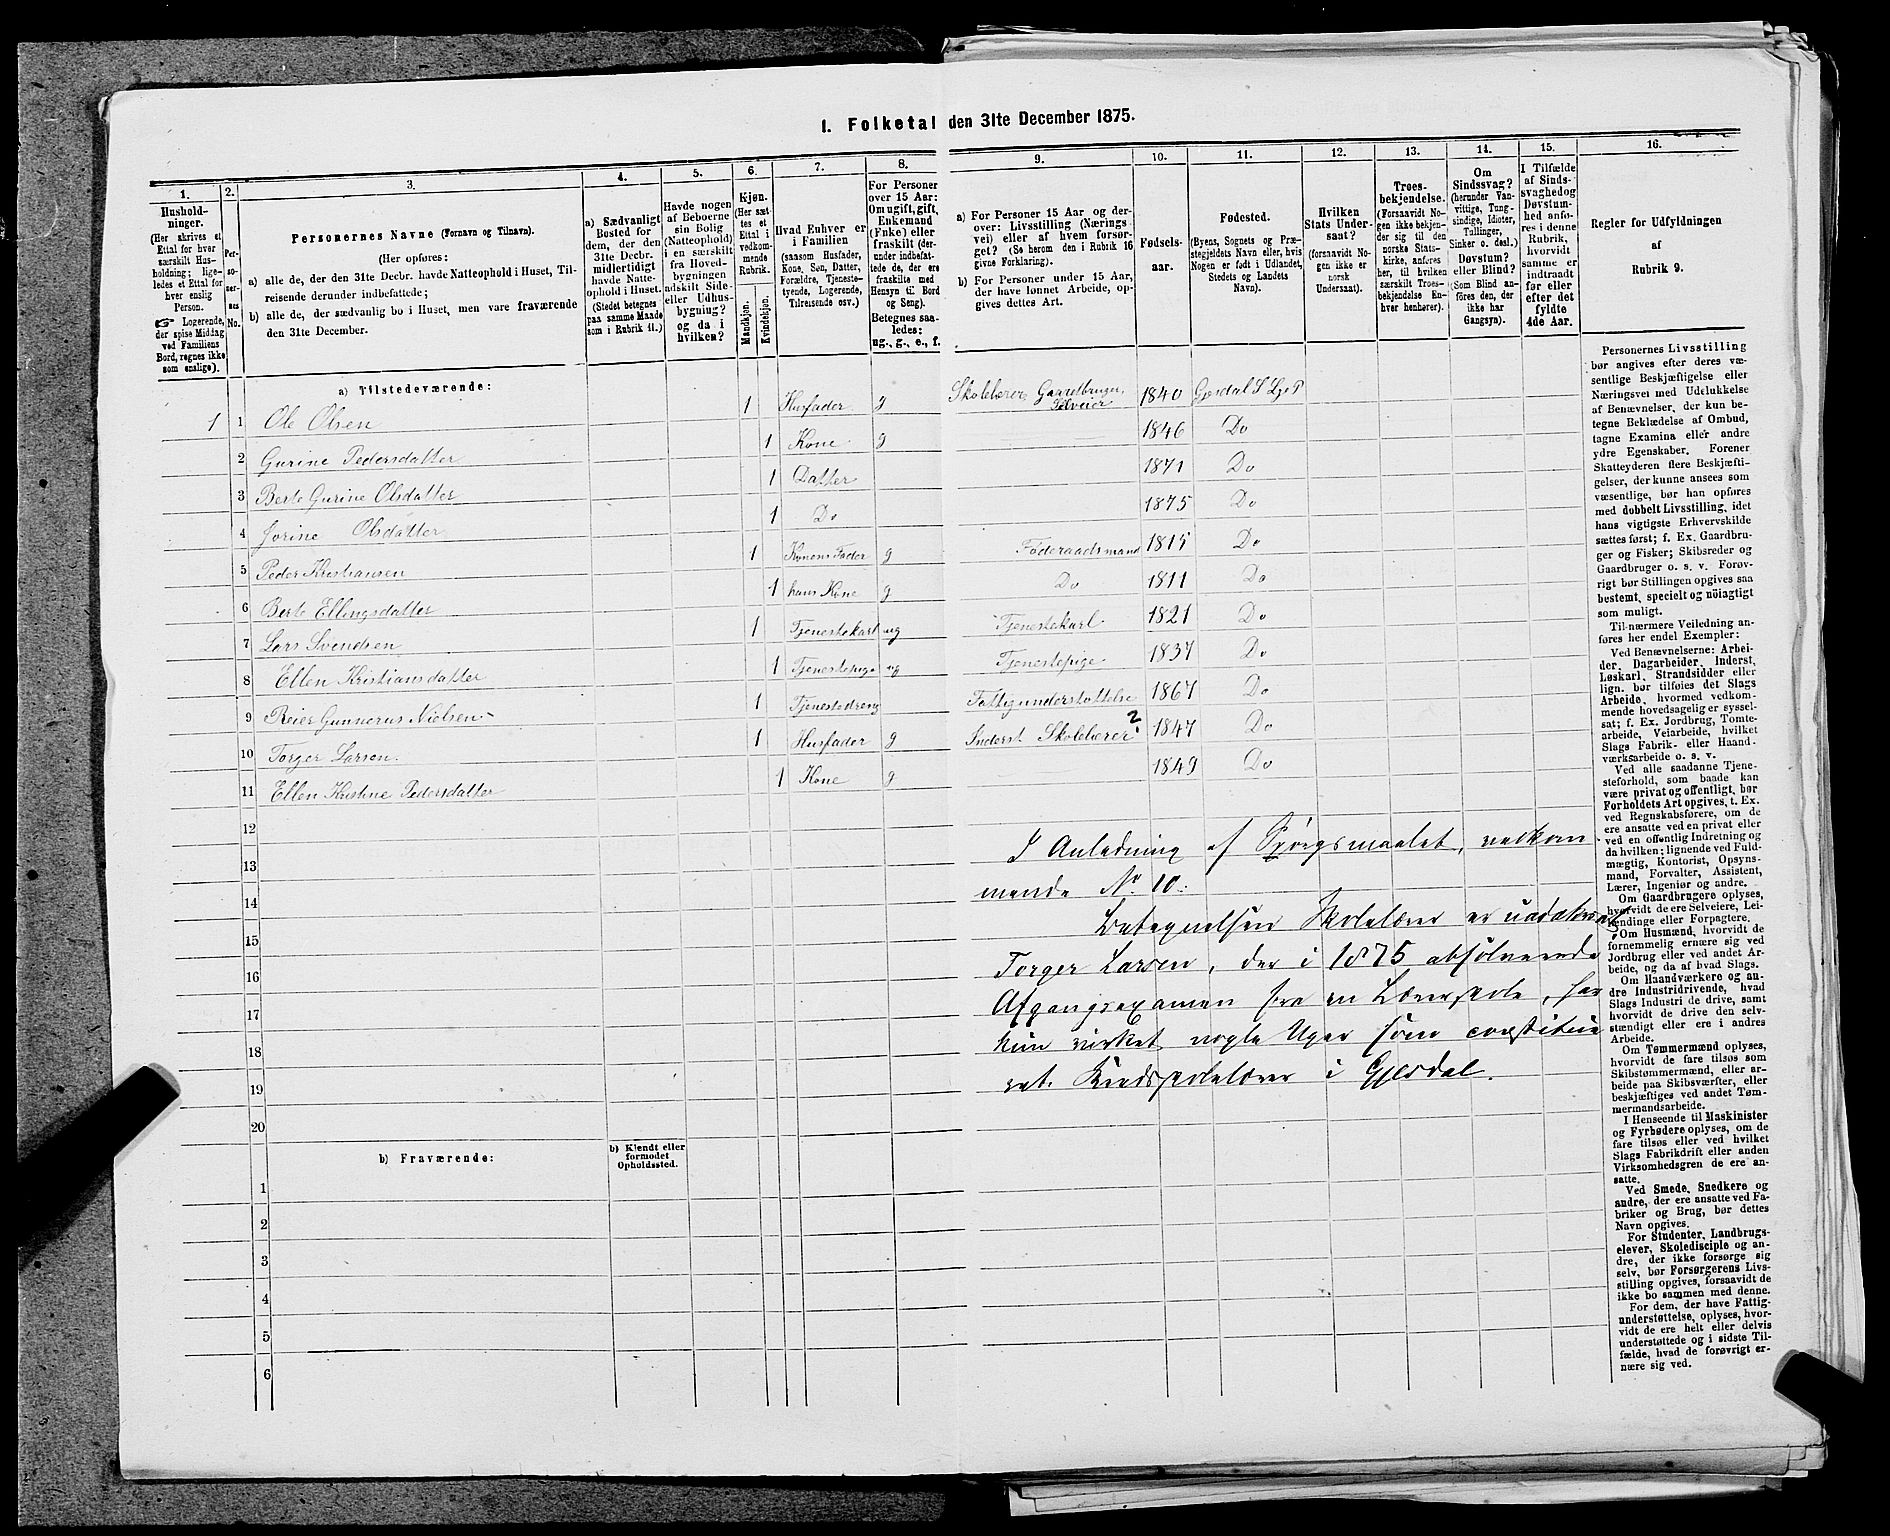 I. Folketal den 31te December 1875.
1. 2. 3. 4. 5. 6. 7. 8. 9. 10. 11. 12. 13. 14. 15. 16.
Hushold-
ninger.
(Her skrives et
Ettal for hver
særskilt Hus-
holdning; lige-
ledes et Ettal for
hver enslig
Person.
Logerende,
der spise Middag
ved Familiens
Bord, regnes ikke
som enslige).
Per-
so-
ner-
nes
No.
Personernes Navne (Fornavn og Tilnavn).
(Her opføres:
a) alle de, der den 31te Decbr. havde Natteophold i Huset, Til-
reisende derunder indbefattede;
b) alle de, der sædvanlig bo i Huset, men vare fraværende
den 31te December.
a) Sædvanligt
Bosted for
dem, der den
31te Decbr.
midlertidigt
havde Natte-
ophold i Huset.
(Stedet betegnes
paa samme Maade
som i Rubrik 11.)
Havde nogen
af Beboerne
sin Bolig
(Natteophold)
i en særskilt
fra Hoved-
bygningen
adskilt Side-
eller Udhus-
bygning?
og da i
hvilken?
Kjøn.
(Her sæt-
tes et
Ettal i
vedkom-
mende
Rubrik.
Mandkjøn.
Kvindekjøn.
Hvad Enhver er
i Familien
(saasom Husfader,
Kone, Søn, Datter,
Forældre, Tjeneste-
tyende, Logerende,
Tilreisende osv.)
For Personer
over 15 Aar:
Om ugift, gift,
Enkemand
(Enke) eller
fraskilt (der-
under indbefat-
tede de, der ere
fraskilte med
Hensyn til Bord
og Seng).
Betegnes saa-
ledes:
ug., g., e., f.
a) For Personer 15 Aar og der-
over: Livsstilling (Nærings-
vei) eller af hvem forsør-
get? (Se herom den i Rubrik 16
givne Forklaring).
b) For Personer under 15 Aar,
der have lønnet Arbeide, op-
gives dettes Art.
Fødsels-
aar.
Fødested.
(Byens, Sognets og Præ-
stegjeldets Navn eller, hvis
Nogen er født i Udlandet,
Stedets og Landets
Navn).
Hvilken
Stats Under-
saat?
(forsaavidt No-
gen ikke er
norsk
Undersaat).
Troes-
bekjendelse.
(Forsaavidt No-
gen ikke bekjen-
der sig til den
norske Stats-
kirke, anføres
her, til hvilken
særskilt Troes-
bekjendelse En-
hver henhører).
Om
Sindssvag?
(herunder Van-
vittige, Tung-
sindige, Idioter,
Tullinger,
Sinker o. desl.)
Døvstum?
eller Blind?
(Som Blind an-
føres den, der
ikke har
Gangsyn).
I Tilfælde
af Sinds-
svaghed og
Døvstum-
hed anfø-
res i denne
Rubrik,
hvorvidt
samme er
indtraadt
før eller
efter det
fyldte
4de Aar.
Regler for Udfyldningen
af
Rubrik 9.
a) Tilstedeværende:
1 1 Ole Olsen 1 Husfader g Skolelærer, Gaardbruger, Selveier 1840 Gjesdal S Lye P
2 Gurine Pedersdatter 1 Kone g 1846 Do
3 Berte Gurine Olsdatter 1 Datter 1871 Do
4 Jorine Olsdatter 1 Do 1875 Do
5 Peder Kristiansen 1 Konens Fader g Føderaadsmand 1815 Do
6 Berte Ellingsdatter 1 hans Kone g Do 1811 Do
7 Lars Svendsen 1 Tjenestekarl ug Tjenestekarl 1821 Do
8 Ellen Kristiansdatter 1 Tjenestepige ug Tjenestepige 1837 Do
9 Reier Gunnerus Nielsen 1 Tjenestedreng Fattigunderstøttelse 1867 Do
10 Torger Larsen. 1 Husfader g Inderst Skolelærer ? 1847 Do
11 Ellen Kristine Pedersdatter 1 Kone g 1849 Do
12
13
14
15
16
17
18
19
20
I Anledning af Spørgsmaalet, vedkom
mende No 10:
Betegnelsen Skolelærer er
Torger Larsen, der i 1875 absolverede
Afgangsexamen fra en Lærerskole, har
kun virket nogle Uger som constitue
ret Kredsskolelærer i Gjesdal.
b) Fraværende:
b) Kjendt eller
formodet
Opholdssted.
1
2
3
4
5
6
Personernes Livsstilling
bør angives efter deres væ-
sentlige Beskjæftigelse eller
Næringsvei med Udelukkelse
af Benævnelser, der kun be-
tegne Beklædelse af Ombud,
tagne Examina eller andre
ydre Egenskaber. Forener
Skatteyderen flere Beskjæfti-
gelser, der kunne ansees som
væsentlige, bør han opføres
med dobbelt Livsstilling, idet
hans vigtigste Erhvervskilde
sættes først; f. Ex. Gaardbru-
ger og Fisker; Skibsreder og
Gaardbruger o. s. v. Forøv-
rigt bør Stillingen opgives saa
bestemt, specielt og nøiagtigt
som muligt.
Til nærmere Veiledning an-
føres her endel Exempler:
Ved Benævnelserne: Arbei-
der, Dagarbeider, Inderst,
Løskarl, Strandsidder eller
lign. bør tilføies det Slags
Arbeide, hvormed vedkom-
mende hovedsagelig er syssel-
sat; f. Ex. Jordbrug, Tomte-
arbeide, Veiarbeide, hvilket
Slags Fabrik- eller Haand-
værksarbeide o. s. v.
Ved alle saadanne Tjene-
steforhold, som baade kan
være privat og offentligt, bør
Forholdets Art opgives, t. Ex.
ved Regnskabsførere, om de
ere ansatte ved en privat eller
ved en offentlig Indretning og
da hvilken; lignende ved Fuld-
mægtig, Kontorist, Opsyns-
mand, Forvalter, Assistent,
Lærer, Ingeniør og andre.
Om Gaardbrugere oplyses,
hvorvidt de ere Selveiere, Lei-
lændinge eller Forpagtere.
Om Husmænd, hvorvidt de
fornemmelig ernære sig ved
Jordbrug eller ved andet Ar-
beide, og da af hvad Slags.
Om Haandværkere og an-
dre Industridrivende, hvad
Slags Industri de drive, samt
hvorvidt de drive den selv-
stændigt eller ere i andres
Arbeide.
Om Tømmermænd oplyses,
hvorvidt de fare tilsøs som
Skibstømmermænd, eller ar-
beide paa Skibsværfter, eller
beskjæftiges ved andet Tøm-
mermandsarbeide.
I Henseende til Maskinister
og Fyrbødere oplyses, om de
fare tilsøs eller ved hvilket
Slags Fabrikdrift eller anden
Virksomhedsgren de ere an-
satte.
Ved Smede, Snedkere og
andre, der ere ansatte ved Fa-
briker og Brug, bør dettes
Navn opgives.
For Studenter, Landbrugs-
elever, Skoledisciple og an-
dre, der ikke forsørge sig
selv, bør Forsørgerens Livs-
stilling opgives, forsaavidt de
ikke bo sammen med denne.
For dem, der have Fattig-
understøttelse, oplyses, hvor-
vidt de ere helt eller delvis
understøttede og i sidste Til-
fælde, hvad de forøvrigt er-
nære sig ved.